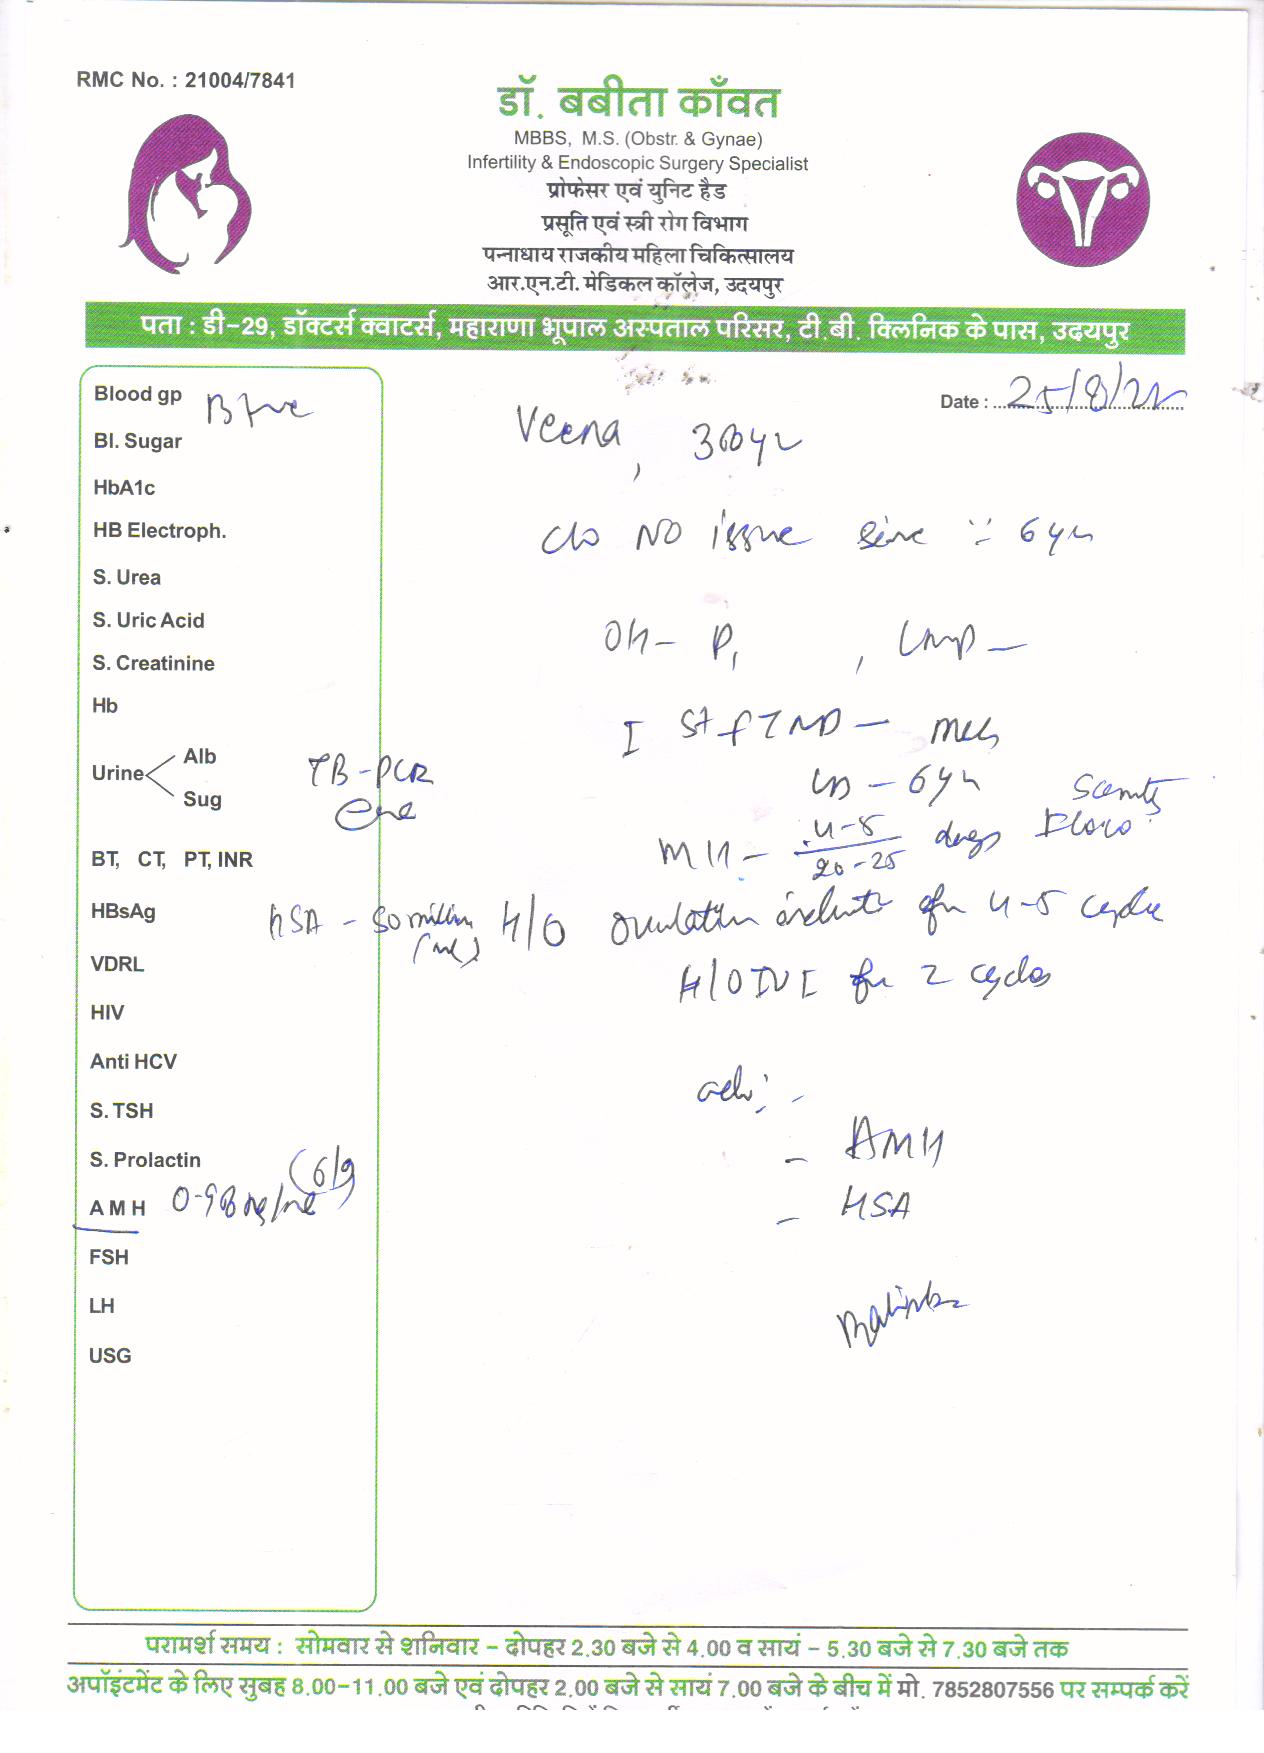 RMC No. : 21004/7841
डॉ. बबीता काँवत
MBBS, M.S. (Obstr. & Gynae)
Infertility & Endoscopic Surgery Specialist
प्रोफेसर एवं युनिट हैड
प्रसूति एवं स्त्री रोग विभाग
पन्नाधाय राजकीय महिला चिकित्सालय
आर.एन.टी. मेडिकल कॉलेज, उदयपुर
पता : डी-29, डॉक्टर्स क्वाटर्स, महाराणा भूपाल अस्पताल परिसर, टी.बी. क्लिनिक के पास, उदयपुर
Date : 25/8/22
Blood gp B +ve
Veena, yr
Bl. Sugar
HbA1c
HB Electroph.
c/o NO issue since 6 yr
S. Urea
S. Uric Acid
OH - P1, LMP -
S. Creatinine
Hb
I st FTND -
Urine Alb
Sug
TB-PCR
LD - 6 yr
MH - 4-5 / 20-25 days
Scanty
BT, CT, PT, INR
HBsAg
HSA - million H/O ovulation for 4-5 cycle
VDRL
H/O IUI for 2 cycles
HIV
Anti HCV
adv: -
S. TSH
- AMH
S. Prolactin
(6/9)
A M H
- HSA
FSH
LH
USG
परामर्श समय : सोमवार से शनिवार - दोपहर 2.30 बजे से 4.00 व सायं - 5.30 बजे से 7.30 बजे तक
अपॉइंटमेंट के लिए सुबह 8.00-11.00 बजे एवं दोपहर 2.00 बजे से सायं 7.00 बजे के बीच में मो. 7852807556 पर सम्पर्क करें